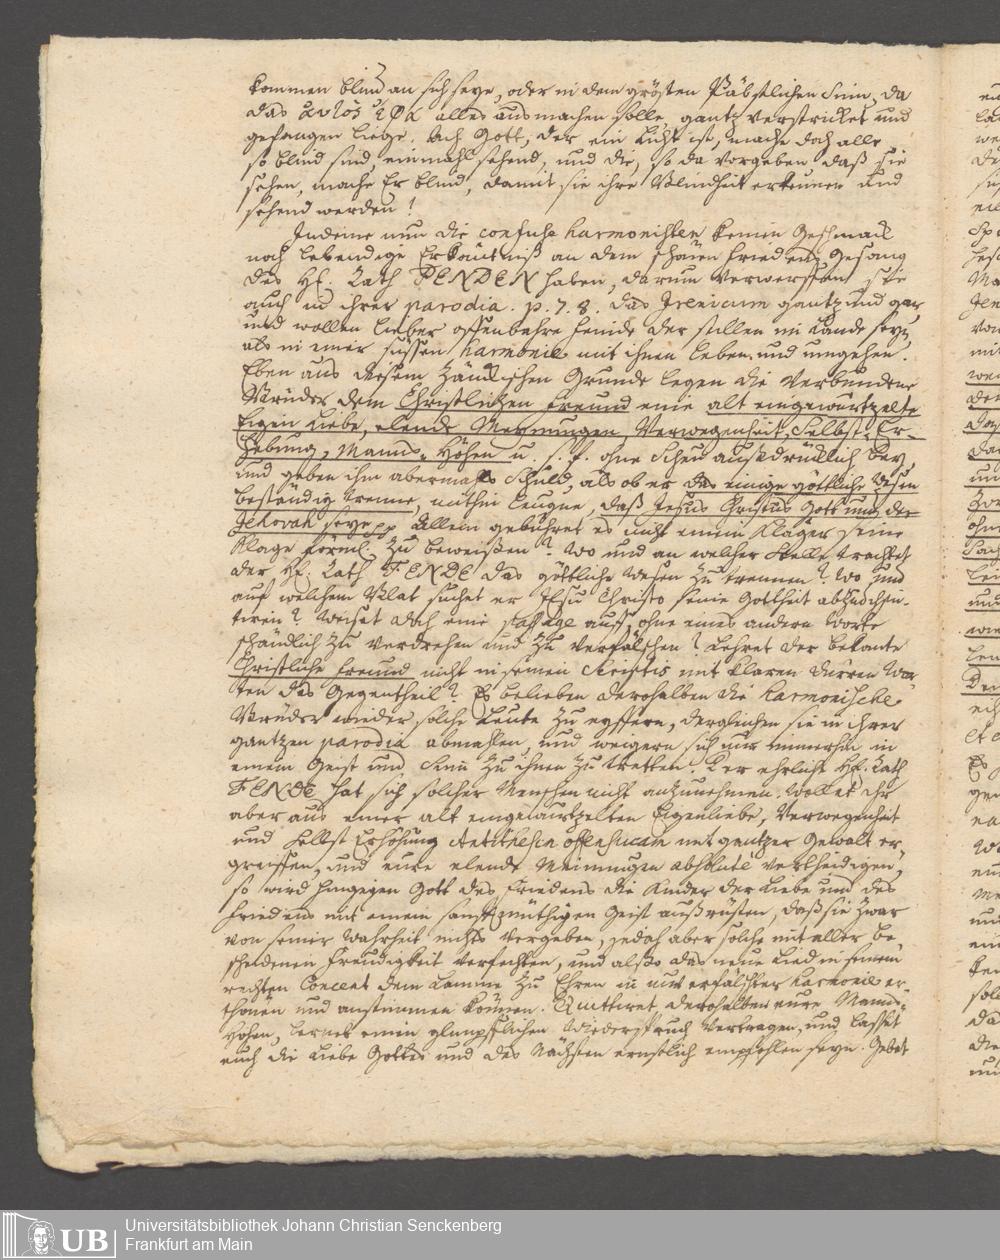 kommen blind an sich seye, oder in dem grösten Päbstlichen Sinn, da
das αυτος εφα alles ausmachen solle, gantz verstricket und
gefangen liege. Ach Gott, der ein Licht ist, mache doch alle
so blind sind, einmahl sehend, und die, so da vorgeben daß sie
sehen, mache Er blind, damit sie ihre Blindheit erkennen und
sehend werden!
Indeme nun die confuse harmonisten keinen Geschmack
noch lebendige Erkäntniß an dem schönen friedens Gesang
des H. Rath FENDEN haben, darum verwerffen sie
auch in ihrer parodia. p. 7. 8. das Irenicum gantz und gar,
und wollen lieber offenbahre feinde der stillen im Lande seyn
als in einer süssen harmonie mit ihnen leben und umgehen.
Eben aus diesem zänckischen Grunde legen die verbundene
Brüder dem Christlichen freund eine alt eingewurtzelte
Eigen Liebe, elende Meinungen, Verwegenheit, Selbst-Er-
hebung, Manns-Höhen u. s. f. ohne scheu ausdrücklich bey,
und geben ihm abermahls schuld, als ob er das einige göttliche Wesen
beständig trenne, mithin leugne, daß Jesus Christus Gott und der
Jehovah seye pp Allein gebühret es nicht einem Kläger seine
Klage förml. zu beweißen? Wo und an welcher stelle trachtet
der H. Rath FENDE das göttliche Wesen zu trennen? Wo und
auf welchem Blat suchet er JEsu Christo seine Gottheit abzudispu-
tiren? Weiset doch eine passage auff, ohne eines andern Worte
schändlich zu verdrehen und zu verfälschen? Lehret der bekante
Christliche freund nicht in seinen Scriptis mit klaren dürren Wor-
ten das Gegentheil? Es belieben derohalben die harmonische
Brüder wieder solche Leute zu eyffern, dergleichen sie in ihrer
gantzen parodia abmahlen, und weigern sich nur immerhin in
einem Geist und Sinn zu ihnen zu tretten. Der ehrliche H. Rath
FENDE hat sich solcher Menschen nicht anzunehmen. Wollet ihr
aber aus einer alt eingewurtzelten Eigenliebe, Verwegenheit
und selbst Erhöhung Antithesin offensivam mit gantzer Gewalt er-
greiffen, und eure elende Meinungen absolute vertheidigen,
so wird hingegen Gott des friedens die Kinder der Liebe und des
friedens mit einem sanfftmüthigen Geist ausrüsten, daß sie zwar
von seiner Wahrheit nichts vergeben, jedoch aber solche mit aller be-
scheidenen freudigkeit verfechten, und also das neue Lied in seinem
rechten Concent dem Lamme zu Ehren in unverfälschter harmonie er-
thönen und anstimmen können. Quittiret derohalben eure Manns-
Höhen, lernet einen glimpfflichen Wiederspruch vertragen, und lasset
euch die Liebe Gottes und des Nächsten ernstlich empfohlen seyn. Gebet
UB
Universitätsbibliothek Johann Christian Senckenberg
Frankfurt am Main